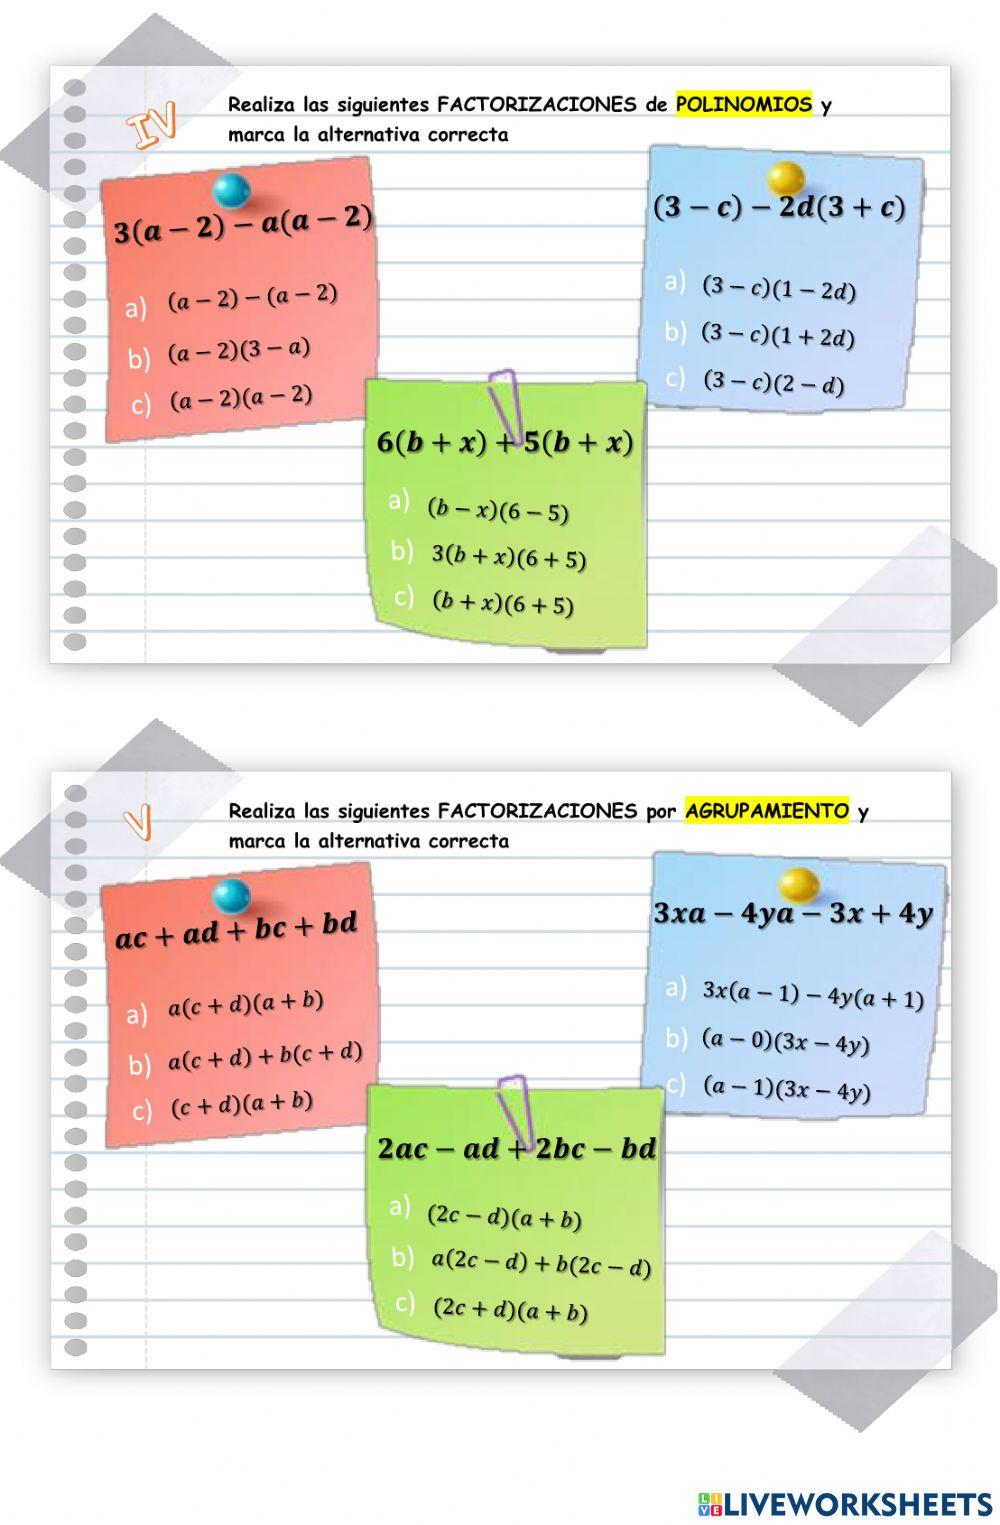 IV
Realiza las siguientes FACTORIZACIONES de POLINOMIOS y
marca la alternativa correcta
3(a − 2) − a(a − 2)
a) (a − 2) − (a − 2)
b) (a − 2)(3 − a)
c) (a − 2)(a − 2)
(3 − c) − 2d(3 + c)
a) (3 − c)(1 − 2d)
b) (3 − c)(1 + 2d)
c) (3 − c)(2 − d)
6(b + x) + 5(b + x)
a) (b − x)(6 − 5)
b) 3(b + x)(6 + 5)
c) (b + x)(6 + 5)
V
Realiza las siguientes FACTORIZACIONES por AGRUPAMIENTO y
marca la alternativa correcta
ac + ad + bc + bd
a) a(c + d)(a + b)
b) a(c + d) + b(c + d)
c) (c + d)(a + b)
3xa − 4ya − 3x + 4y
a) 3x(a − 1) − 4y(a + 1)
b) (a − 0)(3x − 4y)
c) (a − 1)(3x − 4y)
2ac − ad + 2bc − bd
a) (2c − d)(a + b)
b) a(2c − d) + b(2c − d)
c) (2c + d)(a + b)
LIVE LIVEWORKSHEETS